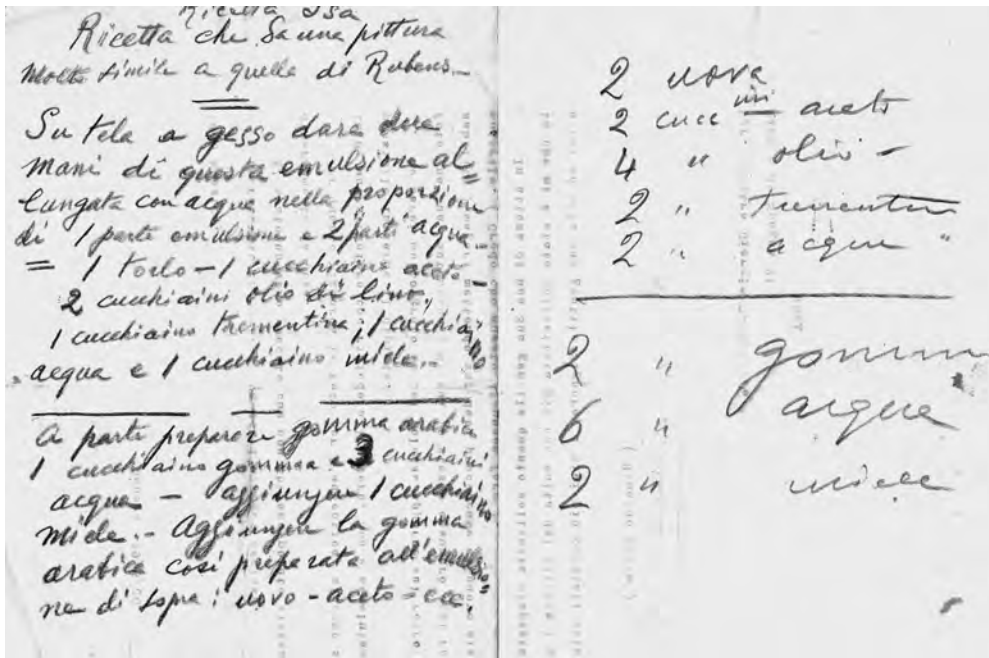 Ricetta Isa
Ricetta che dà una pittura
Molto simile a quella di Rubens.-
Su tela a gesso dare due
mani di questa emulsione al=
lungata con acqua nella proporzione
di 1 parte emulsione e 2 parti acqua
= 1 torlo - 1 cucchiaino aceto -
2 cucchiaini olio di lino,
1 cucchiaino trementina, 1 cucchiaino
acqua e 1 cucchiaino miele.-
A parte preparare gomma arabica
1 cucchiaino gomma e 3 cucchiaini
acqua - aggiungere 1 cucchiaino
miele.- Aggiungere la gomma
arabica così preparata all'emulsio=
ne di sopra: uovo - aceto - ecc.
2 uova
2 cucc ini - aceto
4 " olio -
2 " trementin
2 " acqua "
2 " gomm
6 " acqua
2 " miele